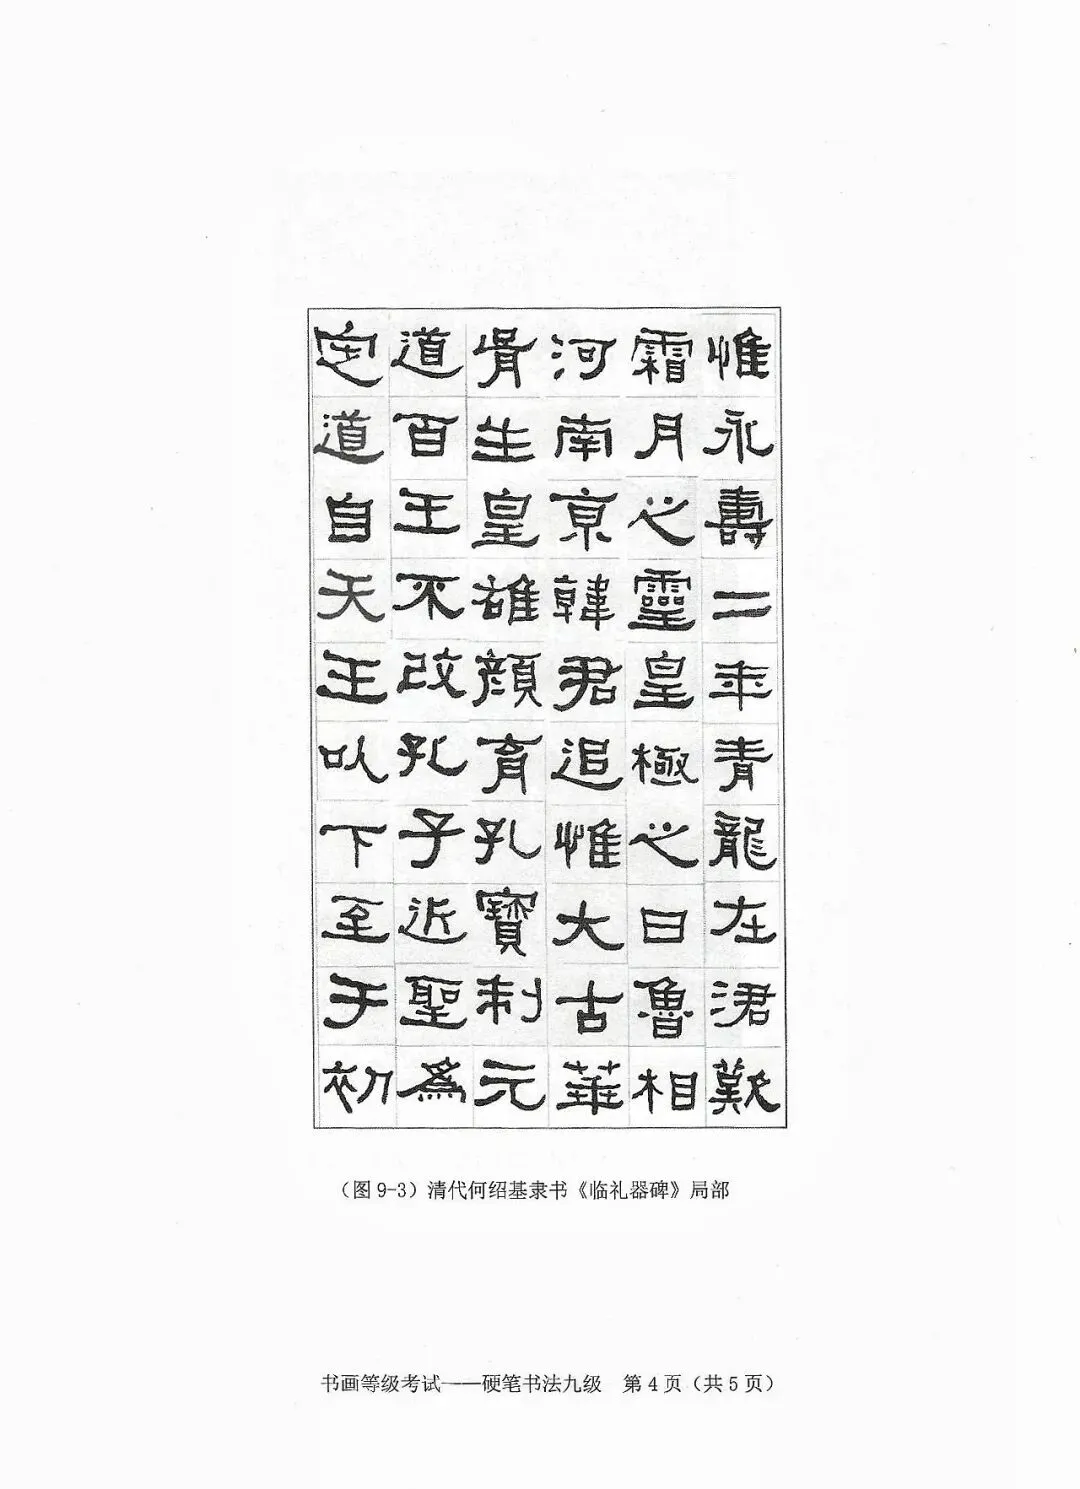 惟永壽二年青龍在涒歎
霜月之靈皇極之日魯相
河南京韓君追惟大古華
胥生皇雄顏育孔寶制元
道百王不改孔子近聖為
定道自天王以下至于初
（图9-3）清代何绍基隶书《临礼器碑》局部
书画等级考试——硬笔书法九级 第4页（共5页）